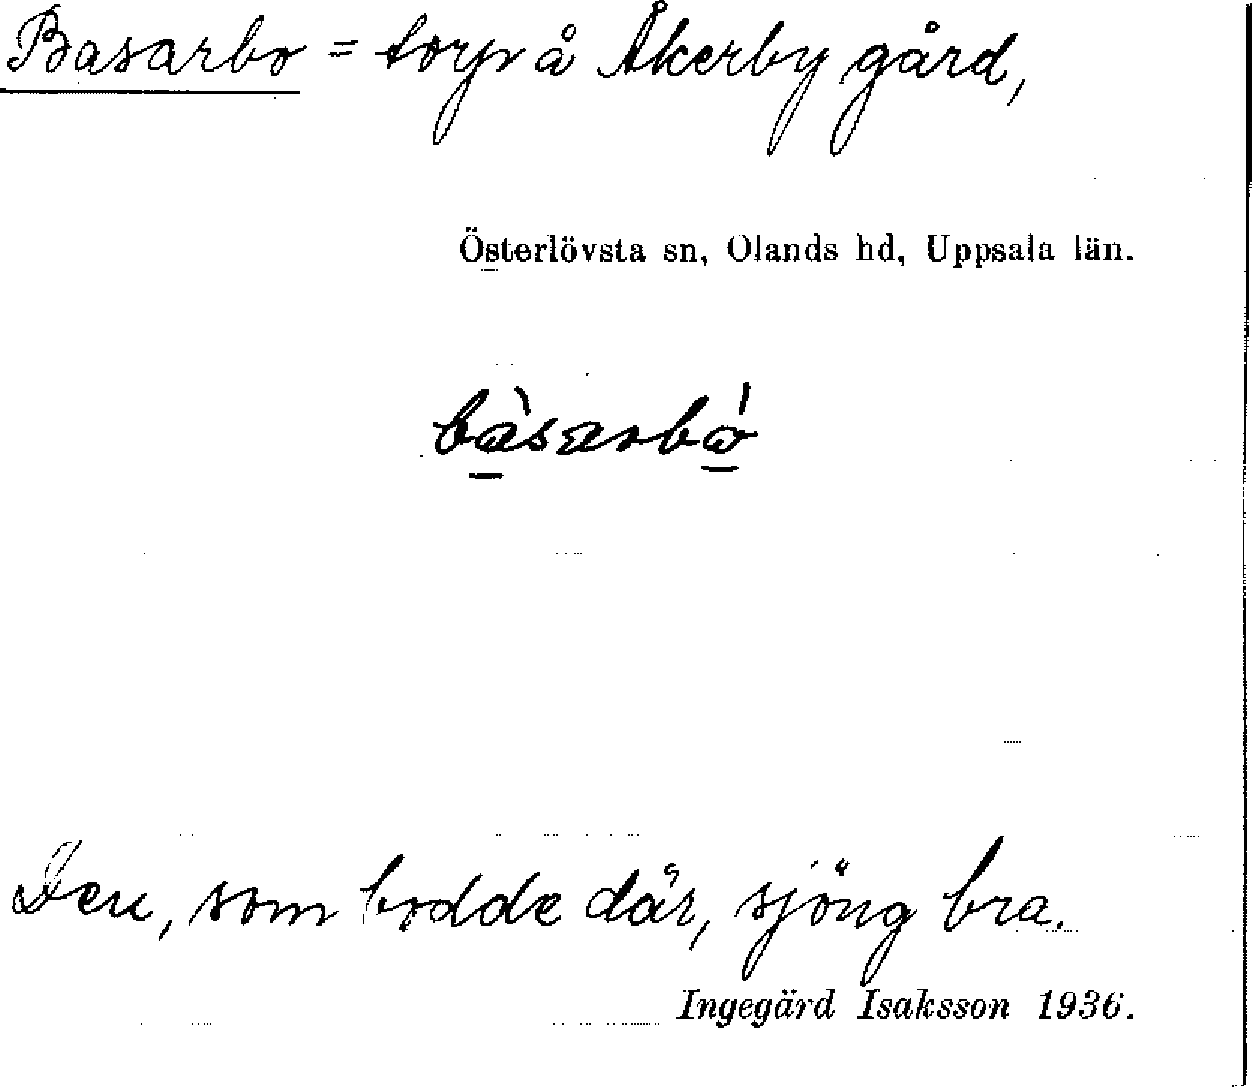 Basarbo = torp å Åkerby gård,
Österlövsta sn, Olands hd, Uppsala län.
bàsarbó
Den, som bodde där, sjöng bra.
Ingegärd Isaksson 1936.